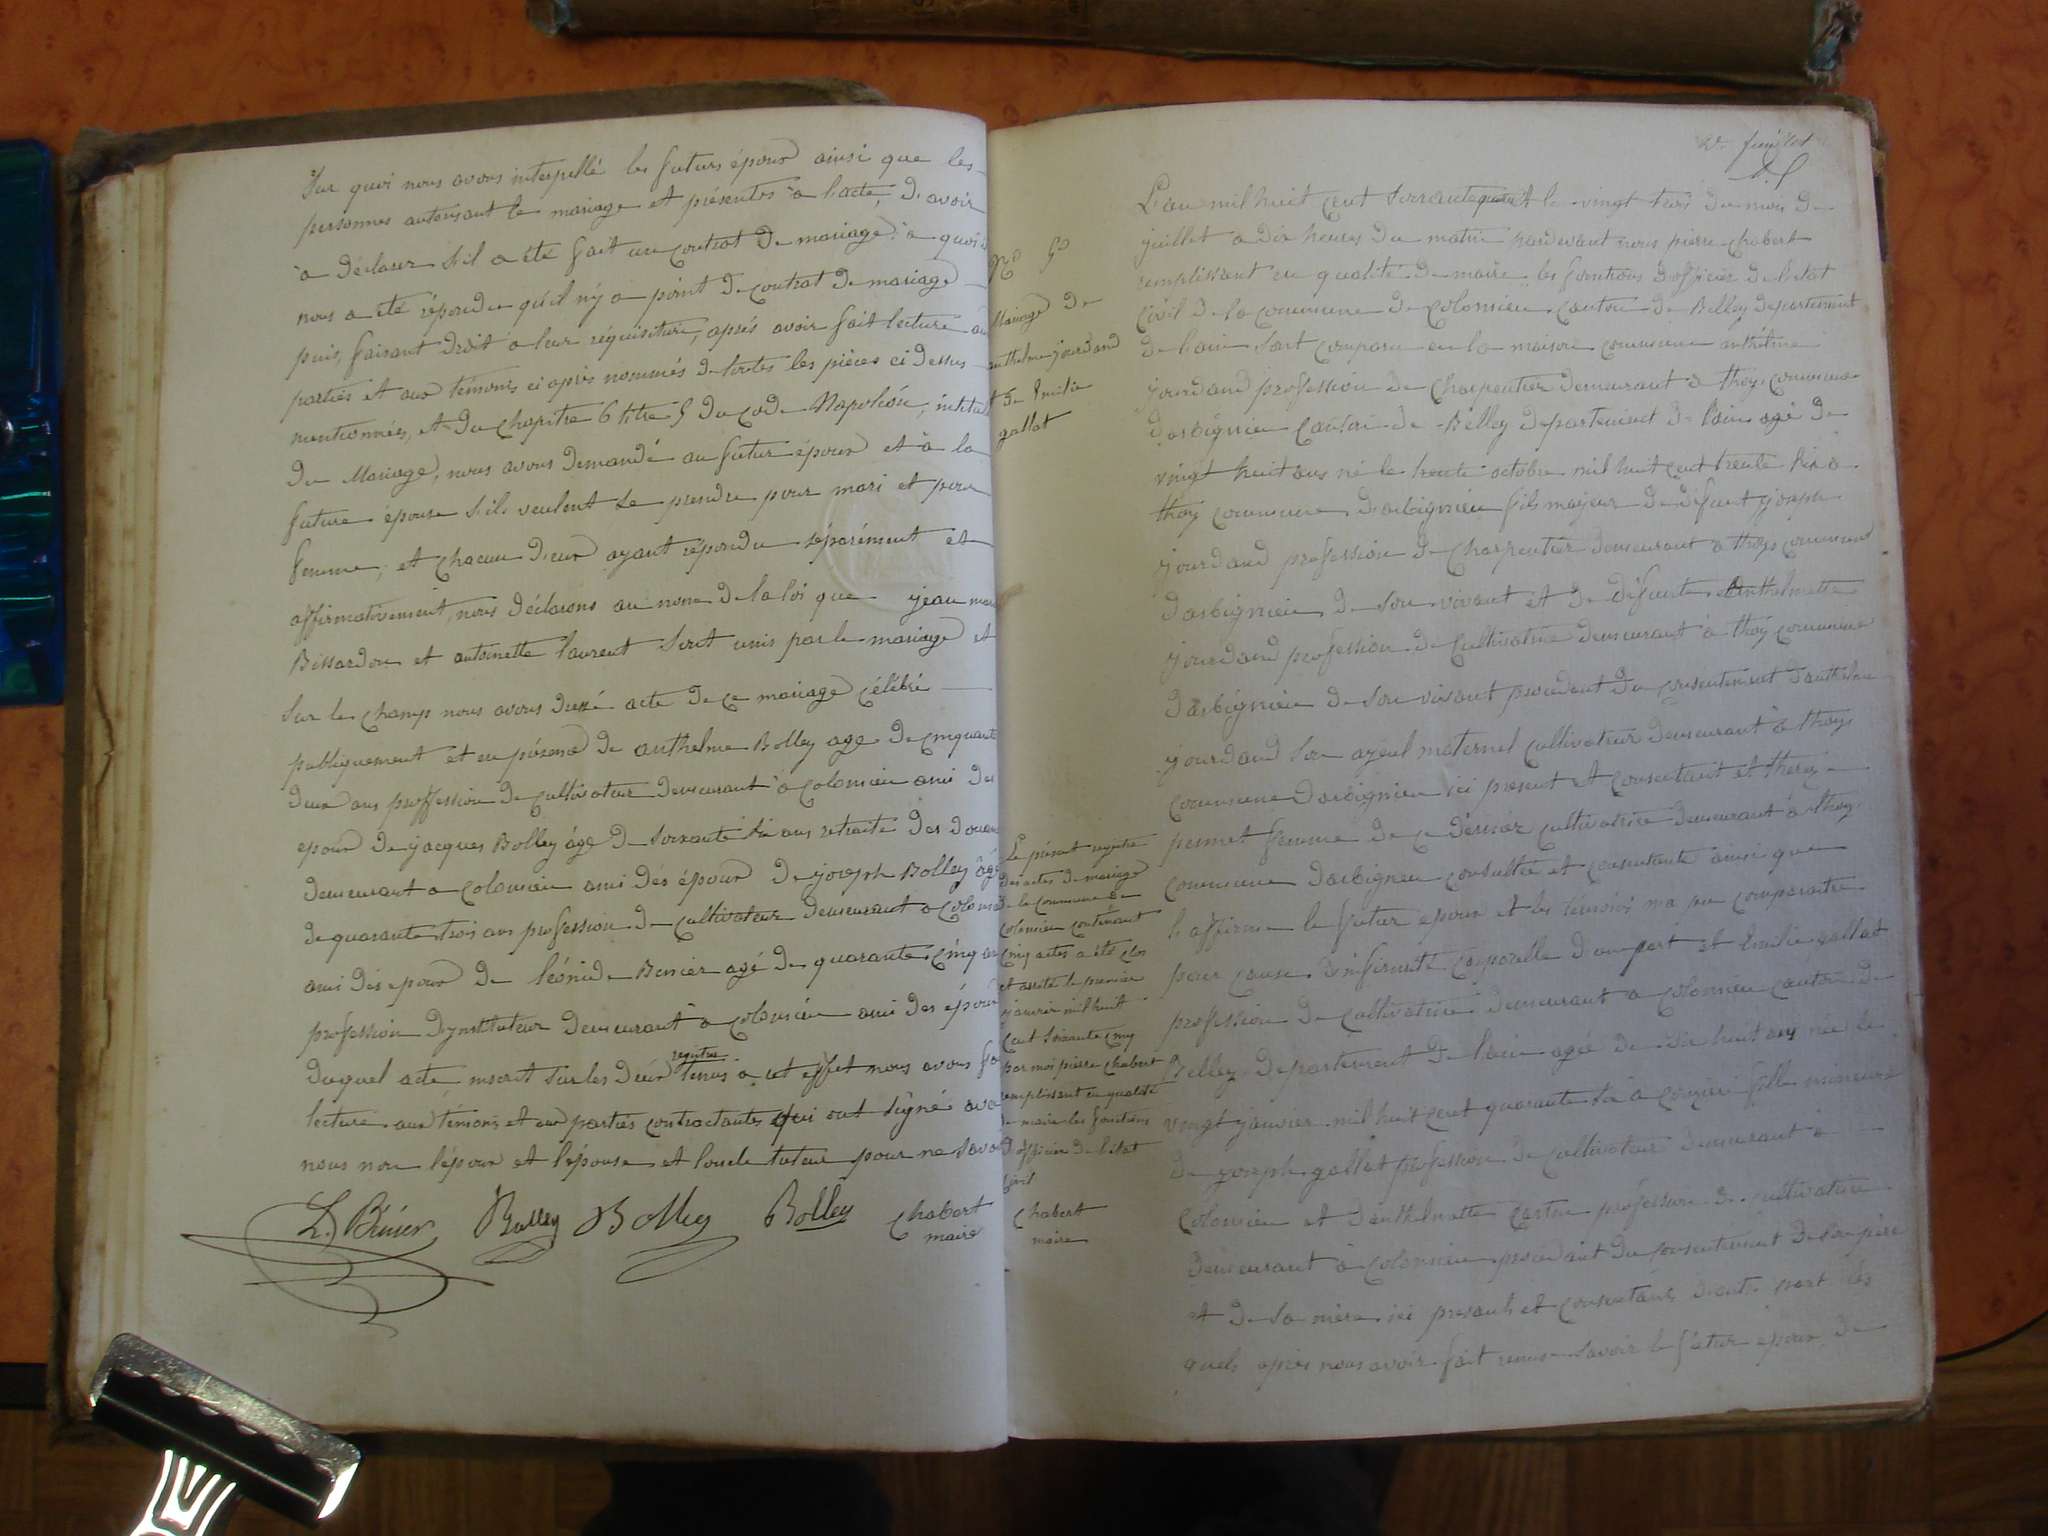 Sur quoi nous avons interpellé les futurs époux ainsi que les
personnes autorisant le mariage et présentes à l'acte, d'avoir
à déclarer s'il a été fait un contrat de mariage à quoi
nous a été répondu qu'il n'y a point de contrat de mariage
puis, faisant droit a leur réquisition, après avoir fait lecture au
parties et aux témoins ci après nommés de toutes les pièces ci dessus
mentionnées, et du chapitre 6 titre 5 du code Napoléon, intitul
du Mariage, nous avons demandé au futur époux et à la
future épouse s'ils veulent se prendre pour mari et pour
femme, et chacun d'eux ayant répondu séparément et
affirmativement, nous déclarons au nom de la loi que jean mar
Bissardon et antoinette laurent sont unis par le mariage et
sur le champ nous avons dressé acte de ce mariage célébré
publiquement et en présence de anthelme Bolley age de cinquante
deux ans proffession de cultivateur demeurant à colomieu ami des
epoux de jacques Bolley âgé de soixante six ans retraité des douan
demeurant a colomieu ami des époux de joseph Bolley âgé
de quarante trois ans profession de cultivateur demeurant a colomieu
ami des epoux de léonide Benier agé de quarante cinq an
profession d'ynstituteur demeurant à colomieu ami des époux
duquel acte inscrit sur les deux registres tenus a cet effet nous avons fa
lecture aux témoins et aux parties contractantes qui ont signé avec
nous non l'époux et l'épouse et l'oncle tuteur pour ne savoir
L. Bénier Bolley Bolley Bolley Chabert
maire
No 5
Mariage de
anthelme jourdand
et de Emilie
gallat
Le présent registre
des actes de mariage
de la commune de
colomieu contenant
cinq actes a été clos
et arrêté le premier
janvier mil huit
cent soixante cinq
par moi pierre chabert
remplissant en qualité
de maire les fonctions
d'officier de l'etat
civil
Chabert
maire
feuillet
L'an mil huit cent soixante quatre et le vingt trois du mois de
juillet a dix heures du matin pardevant nous pierre chabert
remplissant en qualité de maire les fonctions d'officier de l'etat
civil de la commune de colomieu canton de Belley departement
de l'ain sont comparu en la maison commune anthelme
jourdand profession de charpentier demeurant a thoy commune
d'arbignieu canton de Belley departement de l'ain agé de
vingt huit ans né le trente octobre mil huit cent trente six a
thoy commune d'arbignieu fils majeur de défunt joseph
jourdand profession de charpentier demeurant a thoys commune
d'arbignieu de son vivant et de défunte Anthelmette
jourdand profession de cultivatrice demeurant à thoy commune
d'arbignieu de son vivant procedant du consentement d'anthelme
jourdand son ayeul maternel cultivateur demeurant à thoys
commune d'arbignieu ici present et consentant et
pernet femme de ce dernier cultivatrice demeurant à thoy
commune d'arbignieu consultée et consentante ainsi que
l'affirme le futur epoux et les témoins n'a pu comparaitre
pour cause d'infirmité corporelle d'une part et Emilie gallat
profession de cultivatrice demeurant a colomieu canton de
Belley departement de l'ain agée de dix huit ans née le
vingt janvier mil huit cent quarante six à fille mineure
de joseph gallat profession de cultivateur demeurant à
colomieu et d'anthelmette profession de cultivatrice
demeurant à colomieu procédant du consentement de son père
et de sa mère ici presents et consentants d'autre part les
quels après nous avoir fait remis savoir le futur époux de